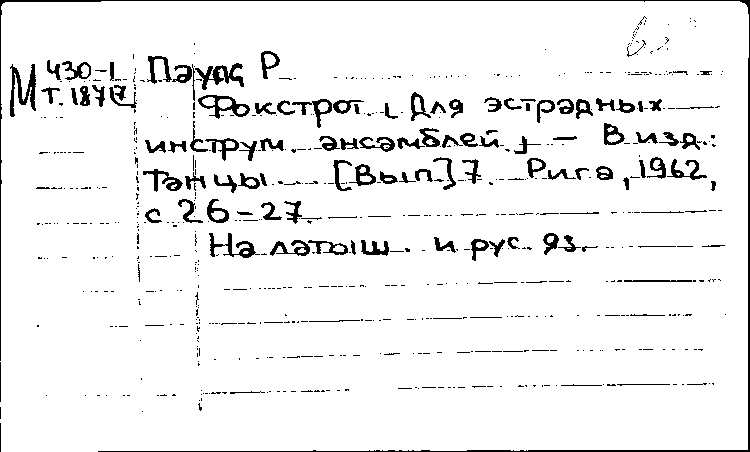 М 430-1 Паулс Р
т. 1871
Фокстрот. [Для эстрадных
инструм. ансамблей.] — В изд.:
Танцы. [Вып.] 7. Рига, 1962,
с. 26-27.
На латыш. и рус. яз.